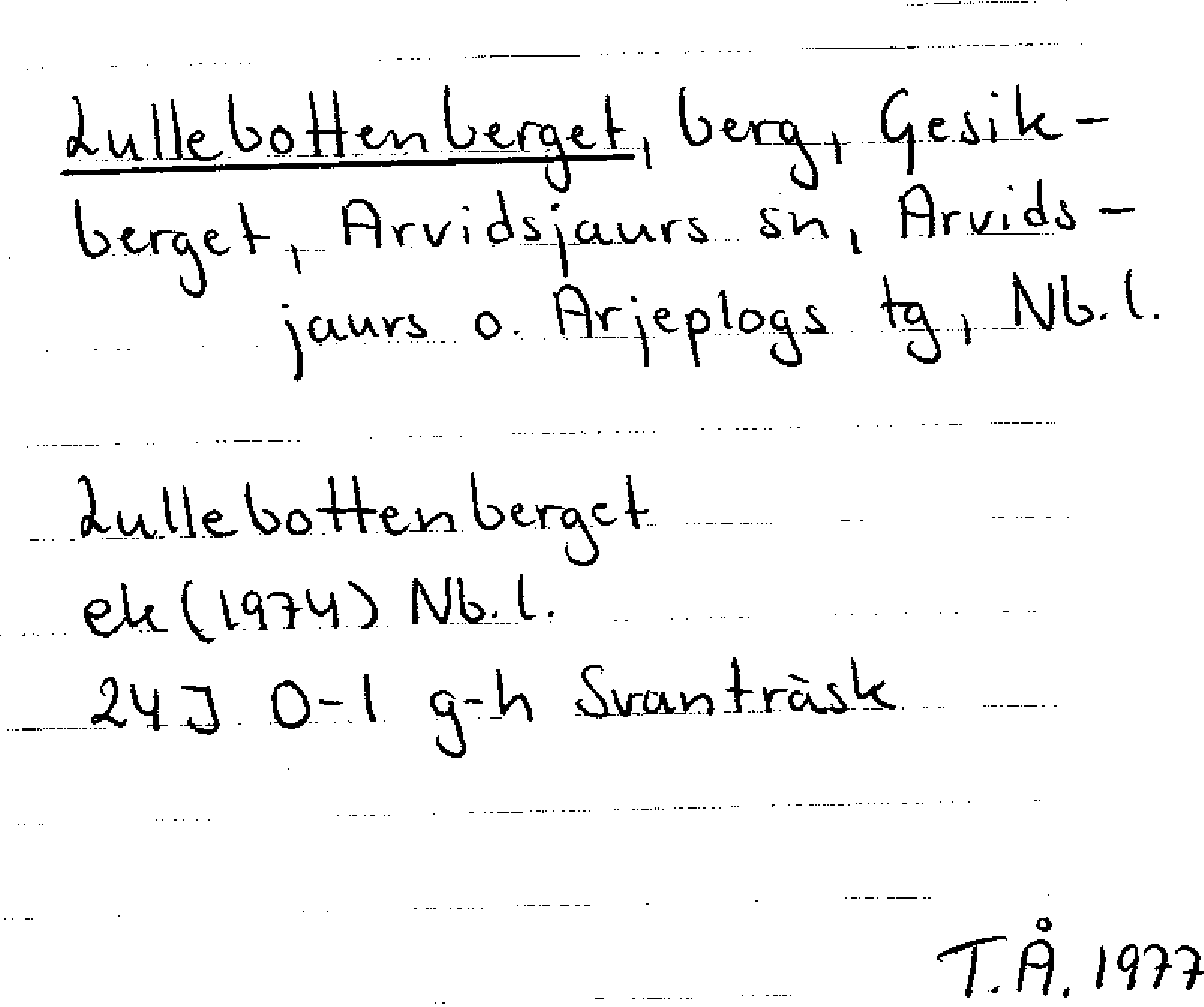 Lullebottenberget, berg, Gesik-
berget, Arvidsjaurs sn, Arvids-
jaurs o. Arjeplogs tg, Nb.l.
Lullebottenberget
ek (1974) Nb.l.
24J 0-1 g-h Svanträsk
T.Å. 1977